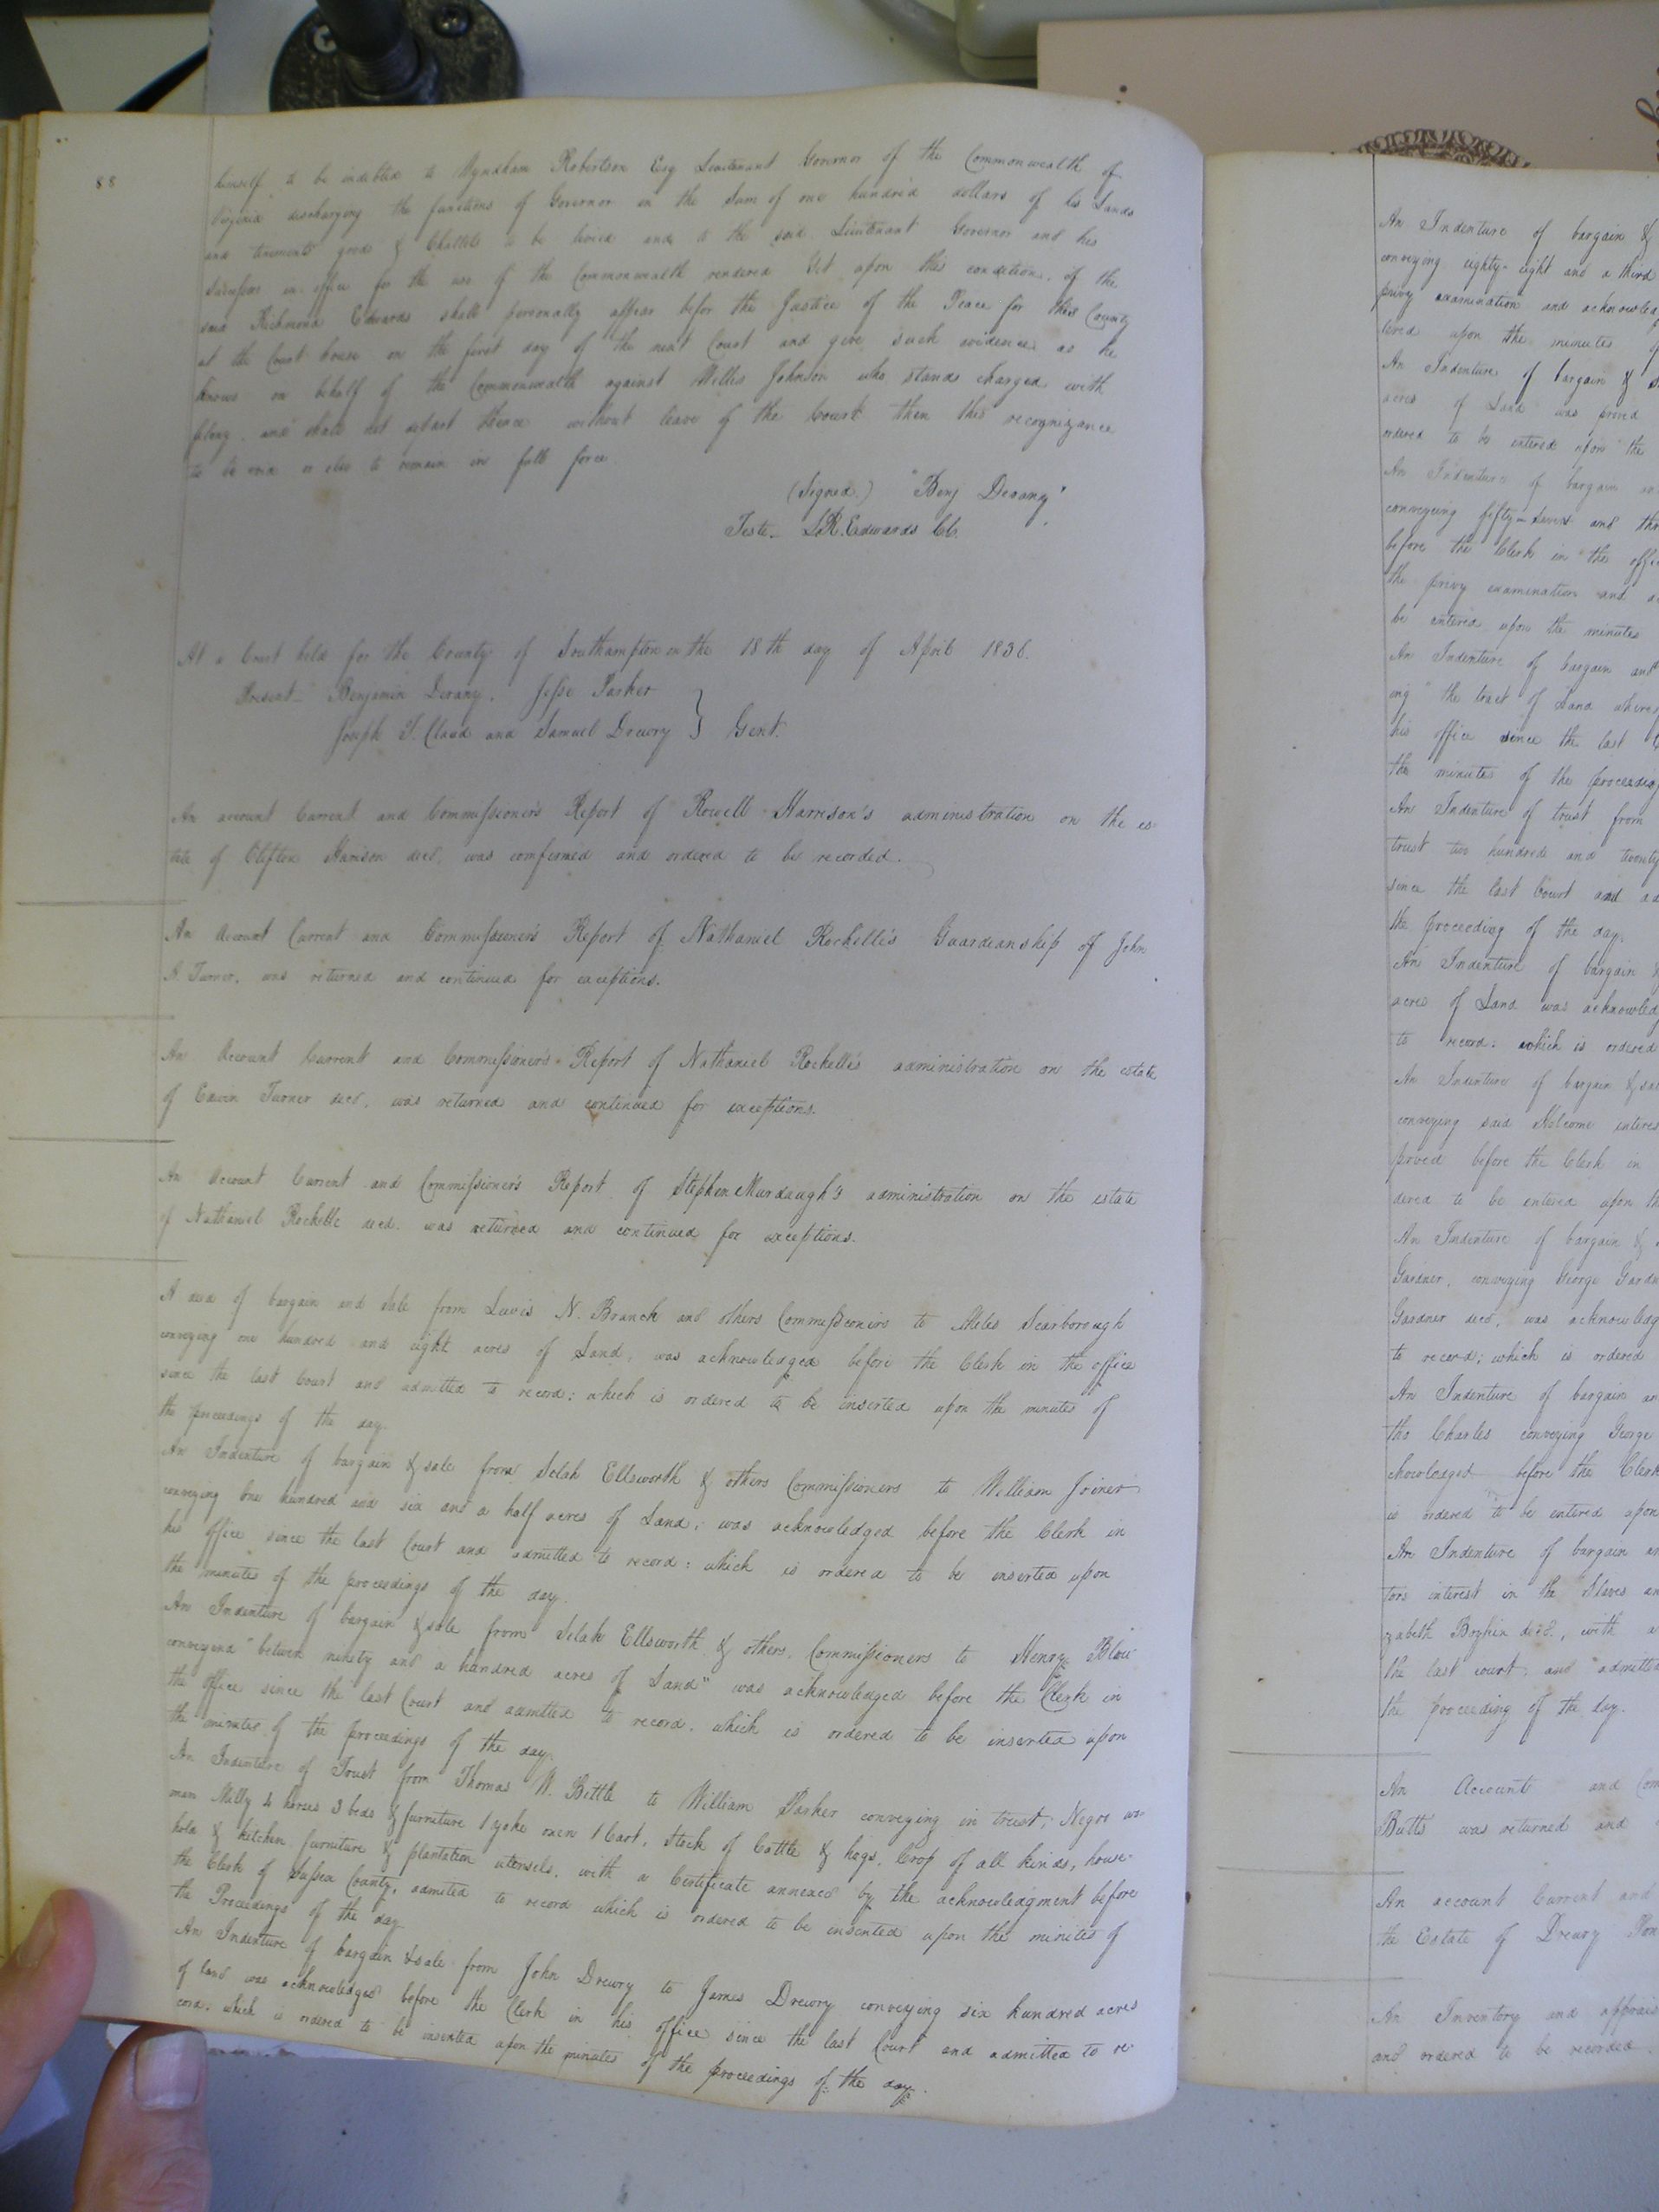 88
himself to be indebted to Wyndham Robertson Esq Lieutenant Governor of the Commonwealth of
Virginia discharging the functions of Governor in the Sum of one hundred dollars of his Lands
and tenements good & Chattels to be levied and to the said Lieutenant Governor and his
Successors in office for the use of the Commonwealth rendered Yet upon this condition, of the
said Richmond Edwards shall personally appear before the Justice of the Peace for this County
at the Court house on the first day of the next Court and give such evidence as he
knows on behalf of the Commonwealth against Willis Johnson who stands charged with
felony, and shall not depart thence without leave of the Court then this recognizance
to be void or else to remain in full force
(Signed.) "Benj Devany"
Teste L.R. Edwards Cl.
At a Court held for the County of Southampton on the 18th day of April 1836.
Present Benjamin Devany, Jesse Parker
Joseph T. Claud and Samuel Drewry } Gent.
An account Current and Commissioner's Report of Rowell Harrison's administration on the es-
tate of Clifton Harrison decd. was confirmed and ordered to be recorded.
An Account Current and Commissioner's Report of Nathaniel Rochelle's Guardianship of John
A. Turner, was returned and continued for exceptions.
An Account Current and Commissioner's Report of Nathaniel Rochelle's administration on the estate
of Edwin Turner decd. was returned and continued for exceptions.
An Account Current and Commissioner's Report of Stephen Murdaugh's administration on the estate
of Nathaniel Rochelle decd. was returned and continued for exceptions.
A deed of bargain and sale from Lewis N. Branch and others Commissioners to Scarborough
conveying one hundred and eight acres of Land, was acknowledged before the Clerk in the office
since the last Court and admitted to record; which is ordered to be inserted upon the minutes of
the proceedings of the day.
An Indenture of bargain & sale from Selah Ellsworth & others Commissioners to William Joiner
conveying one hundred and six and a half acres of Land; was acknowledged before the Clerk in
his office since the last Court and admitted to record: which is ordered to be inserted upon
the minutes of the proceedings of the day.
An Indenture of bargain & sale from Selah Ellsworth & others, Commissioners to Henry Blow
conveying "between ninety and a hundred acres of Land" was acknowledged before the Clerk in
the office since the last Court and admitted to record, which is ordered to be inserted upon
the minutes of the proceedings of the day.
An Indenture of Trust from Thomas W. Bittle to William Parker conveying in trust; Negro wo-
man Milly 4 horses 3 beds & furniture 1 yoke oxen 1 Cart, Stock of Cattle & hogs, Crop of all kinds, house-
hold & kitchen furniture & plantation utensels, with a Certificate annexed by the acknowledgment before
the Clerk of Sussex County, admitted to record which is ordered to be inserted upon the minutes of
the Proceedings of the day
An Indenture of bargain & sale from John Drewry to James Drewry conveying six hundred acres
of land was acknowledged before the Clerk in his office since the last Court and admitted to re-
cord, which is ordered to be inserted upon the minutes of the proceedings of the day.
An Indenture of bargain &
conveying eighty-eight and a third
privy examination and
upon the minutes
An Indenture of bargain &
acres of Land was proved
ordered to be entered upon the
An Indenture of bargain
conveying fifty-seven and
before the Clerk in the
the privy examination and
be entered upon the minutes
An Indenture of bargain and
ing "the tract of Land
his office since the last
the minutes of the
An Indenture of trust from
trust two hundred and twenty
since the last Court and
the proceeding of the day.
An Indenture of bargain
acres of Land was
to record: which is ordered
An Indenture of bargain &
conveying said
proved before the Clerk in
dered to be entered upon
An Indenture of bargain &
Gardner, conveying George
Gardner decd, was
to record; which is ordered
An Indenture of bargain
Charles conveying George
before the Clerk
is ordered to be entered upon
An Indenture of bargain
tors interest in the Slaves
zabeth Boykin decd., with
the last court, and
the proceeding of the day.
An Account and
Butts was returned and
An account Current and
the Estate of Drewry
An Inventory and
and ordered to be recorded.